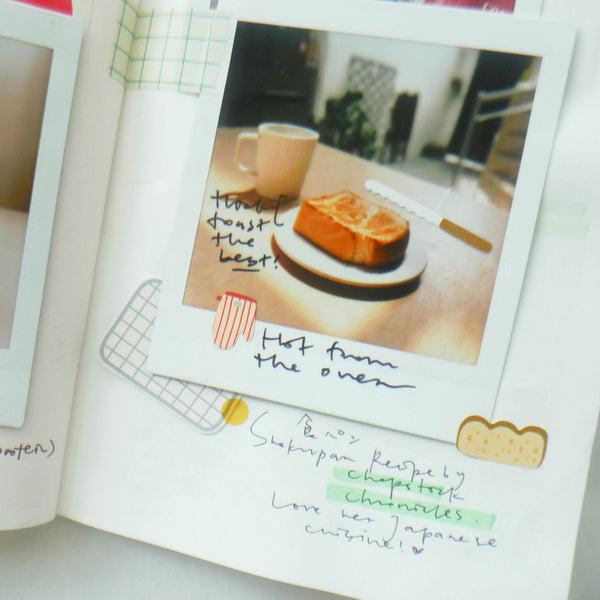 toast
the
best!
Hot from
the oven
食パン
Shokupan Recipe by
chopstick
chronicles.
Love her Japanese
cuisine! ♥